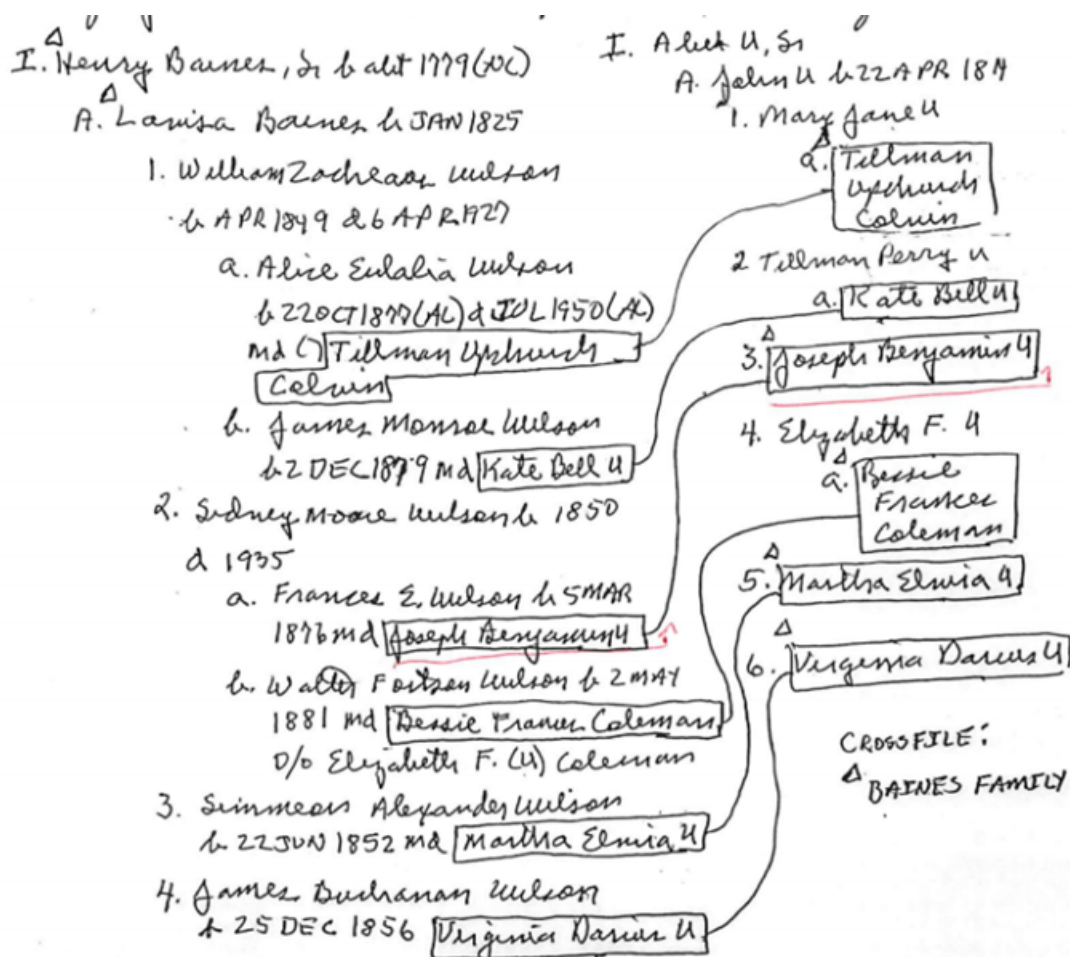 I. Henry Baines, Sr b abt 1779 (NC)
A. Lavisa Baines b JAN 1825
1. William Zacheaos Wilson
b APR 1849 d 6 APR 1927
a. Alice Eulalia Wilson
b 22 OCT 1877 (AL) d JUL 1950 (AL)
md () Tillman Upchurch
Colvin
b. James Monroe Wilson
b 2 DEC 1879 md Kate Bell U
2. Sidney Moore Wilson b 1850
d 1935
a. Frances E. Wilson b 5 MAR
1876 md Joseph Benjamin U
b. Walter Fortson Wilson b 2 MAY
1881 md Bessie Frances Coleman
D/o Elizabeth F. (U) Coleman
3. Simmeon Alexander Wilson
b 22 JUN 1852 md Martha Elmira U
4. James Buchanan Wilson
b 25 DEC 1856 Virginia Darius U
I. U, Sr
A. John U b 22 APR
1. Mary Jane U
a. Tillman
Upchurch
Colvin
2 Tillman Perry U
a. Kate Bell U
3. Joseph Benjamin U
4. Elizabeth F. U
a. Bessie
Frances
Coleman
5. Martha Elmira U
6. Virginia Darius U
CROSSFILE:
BAINES FAMILY